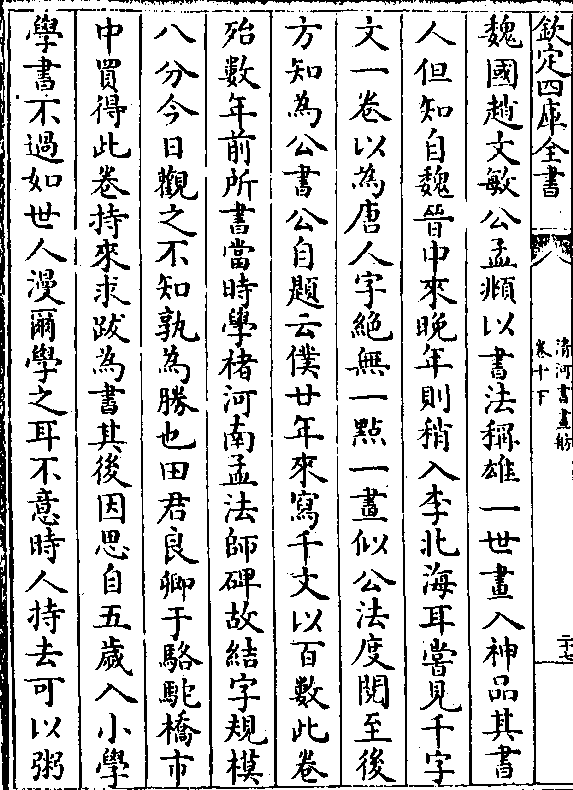 欽定四庫全書
清河書畫舫
卷十下
魏國趙文敏公孟頫以書法稱雄一世畫入神品其書
人但知自魏晉中來晚年則稍入李北海耳嘗見千字
文一卷以為唐人字絶無一點一畫似公法度閲至後
方知為公書公自題云僕廿年來寫千文以百數此卷
殆數年前所書當時學褚河南孟法師碑故結字規模
八分今日觀之不知孰為勝也田君良卿于駱駝橋市
中買得此卷持來求跋為書其後因思自五歲入小學
學書不過如世人漫爾學之耳不意時人持去可以粥